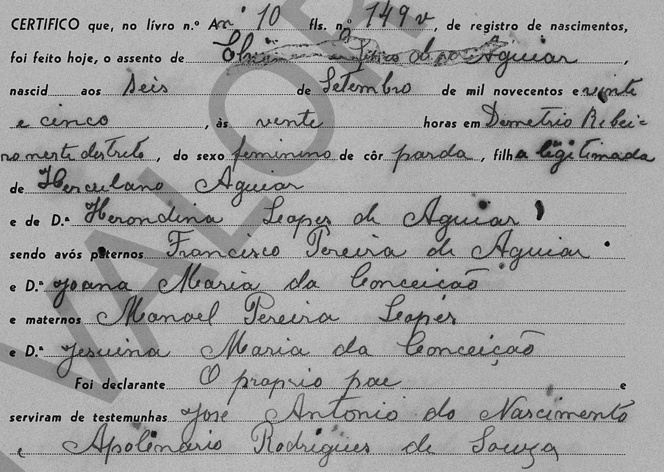 CERTIFICO que, no livro n.º A nº 10 fls. n.º 149 v, de registro de nascimentos,
foi feito hoje, o assento de de Aguiar,
nascid aos Seis de Setembro de mil novecentos e vinte
e cinco, às vente horas em Demetrio Ribei-
ro neste destrito, do sexo feminino de côr parda, filha legitimada
de Herculano Aguiar
e de D.ª Herondina Leopes de Aguiar
sendo avós paternos Francisco Pereira de Aguiar
e D.ª Joana Maria da Conceicão
e maternos Manoel Pereira Leopes
e D.ª Jesuina Maria da Conceição
Foi declarante O proprio pae e
serviram de testemunhas José Antonio do Nascimento
e Apolinario Rodrigues de Souza
VALOR